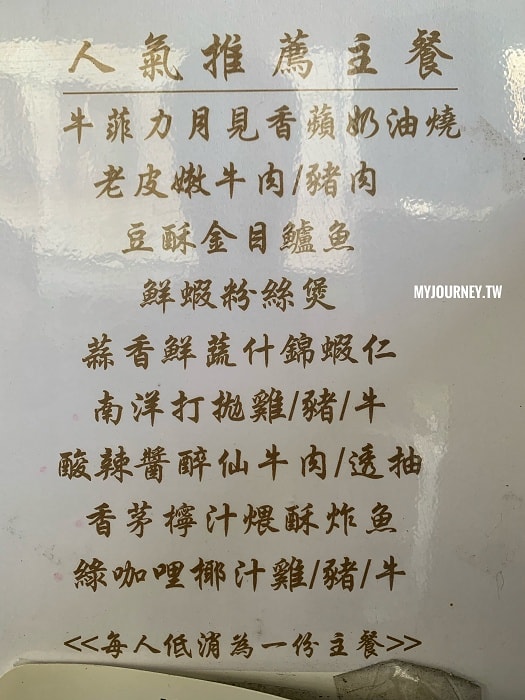 人氣推薦主餐
牛菲力月見香蘋奶油燒
老皮嫩牛肉/豬肉
豆酥金目鱸魚
鮮蝦粉絲煲
MYJOURNEY.TW
蒜香鮮蔬什錦蝦仁
南洋打拋雞/豬/牛
酸辣醬醉仙牛肉/透抽
香茅檸汁煨酥炸魚
綠咖哩椰汁雞/豬/牛
<<每人低消為一份主餐>>